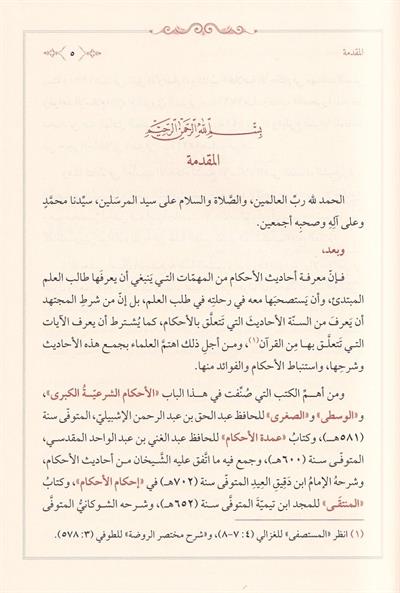 المقدمة
٥
بِسْمِ اللَّهِ الرَّحْمَنِ الرَّحِيمِ
المقدمة
الحمد لله ربِّ العالمين، والصَّلاة والسلام على سيد المرسَلين، سيِّدنا محمَّدٍ
وعلى آلِهِ وصحبِه أجمعين.
وبعد،
فإنَّ معرفة أحاديث الأحكام من المهمّات التي يَنبغي أن يعرفَها طالب العلم
المبتدئ، وأن يَستصحبَها معه في رحلتِه في طلب العلم، بل إنّ من شرطِ المجتهد
أن يَعرفَ من السنّة الأحاديثَ التي تَتعلَّق بالأحكام، كما يُشترط أن يعرف الآيات
التي تَتعلَّق بها مِن القرآن(١)، ومن أجلِ ذلك اهتمَّ العلماء بجمع هذه الأحاديث
وشرحِها، واستنباط الأحكام والفوائد منها.
ومن أهمِّ الكتب التي صُنِّفت في هذا الباب «الأحكام الشرعيّةُ الكبرى»،
و«الوسطى» و«الصغرى» للحافظ عبد الحق بن عبد الرحمن الإشبيليّ، المتوفّى سنة
(٥٨١هـ)، وكتابُ «عمدة الأحكام» للحافظ عبد الغني بن عبد الواحد المقدسي،
المتوفّى سنة (٦٠٠هـ)، وجمع فيه ما اتَّفق عليه الشَّيخان من أحاديث الأحكام،
وشرحهُ الإمامُ ابن دَقِيقِ العِيد المتوفّى سنة (٧٠٢هـ) في «إحكام الأحكام»، وكتابُ
«المنتقَى» للمجد ابن تيميّةَ المتوفَّى سنة (٦٥٢هـ)، وشرحه الشوكانيُّ المتوفَّى
(١) انظر «المستصفى» للغزالي (٤: ٧-٨)، و«شرح مختصر الروضة» للطوفي (٣: ٥٧٨).